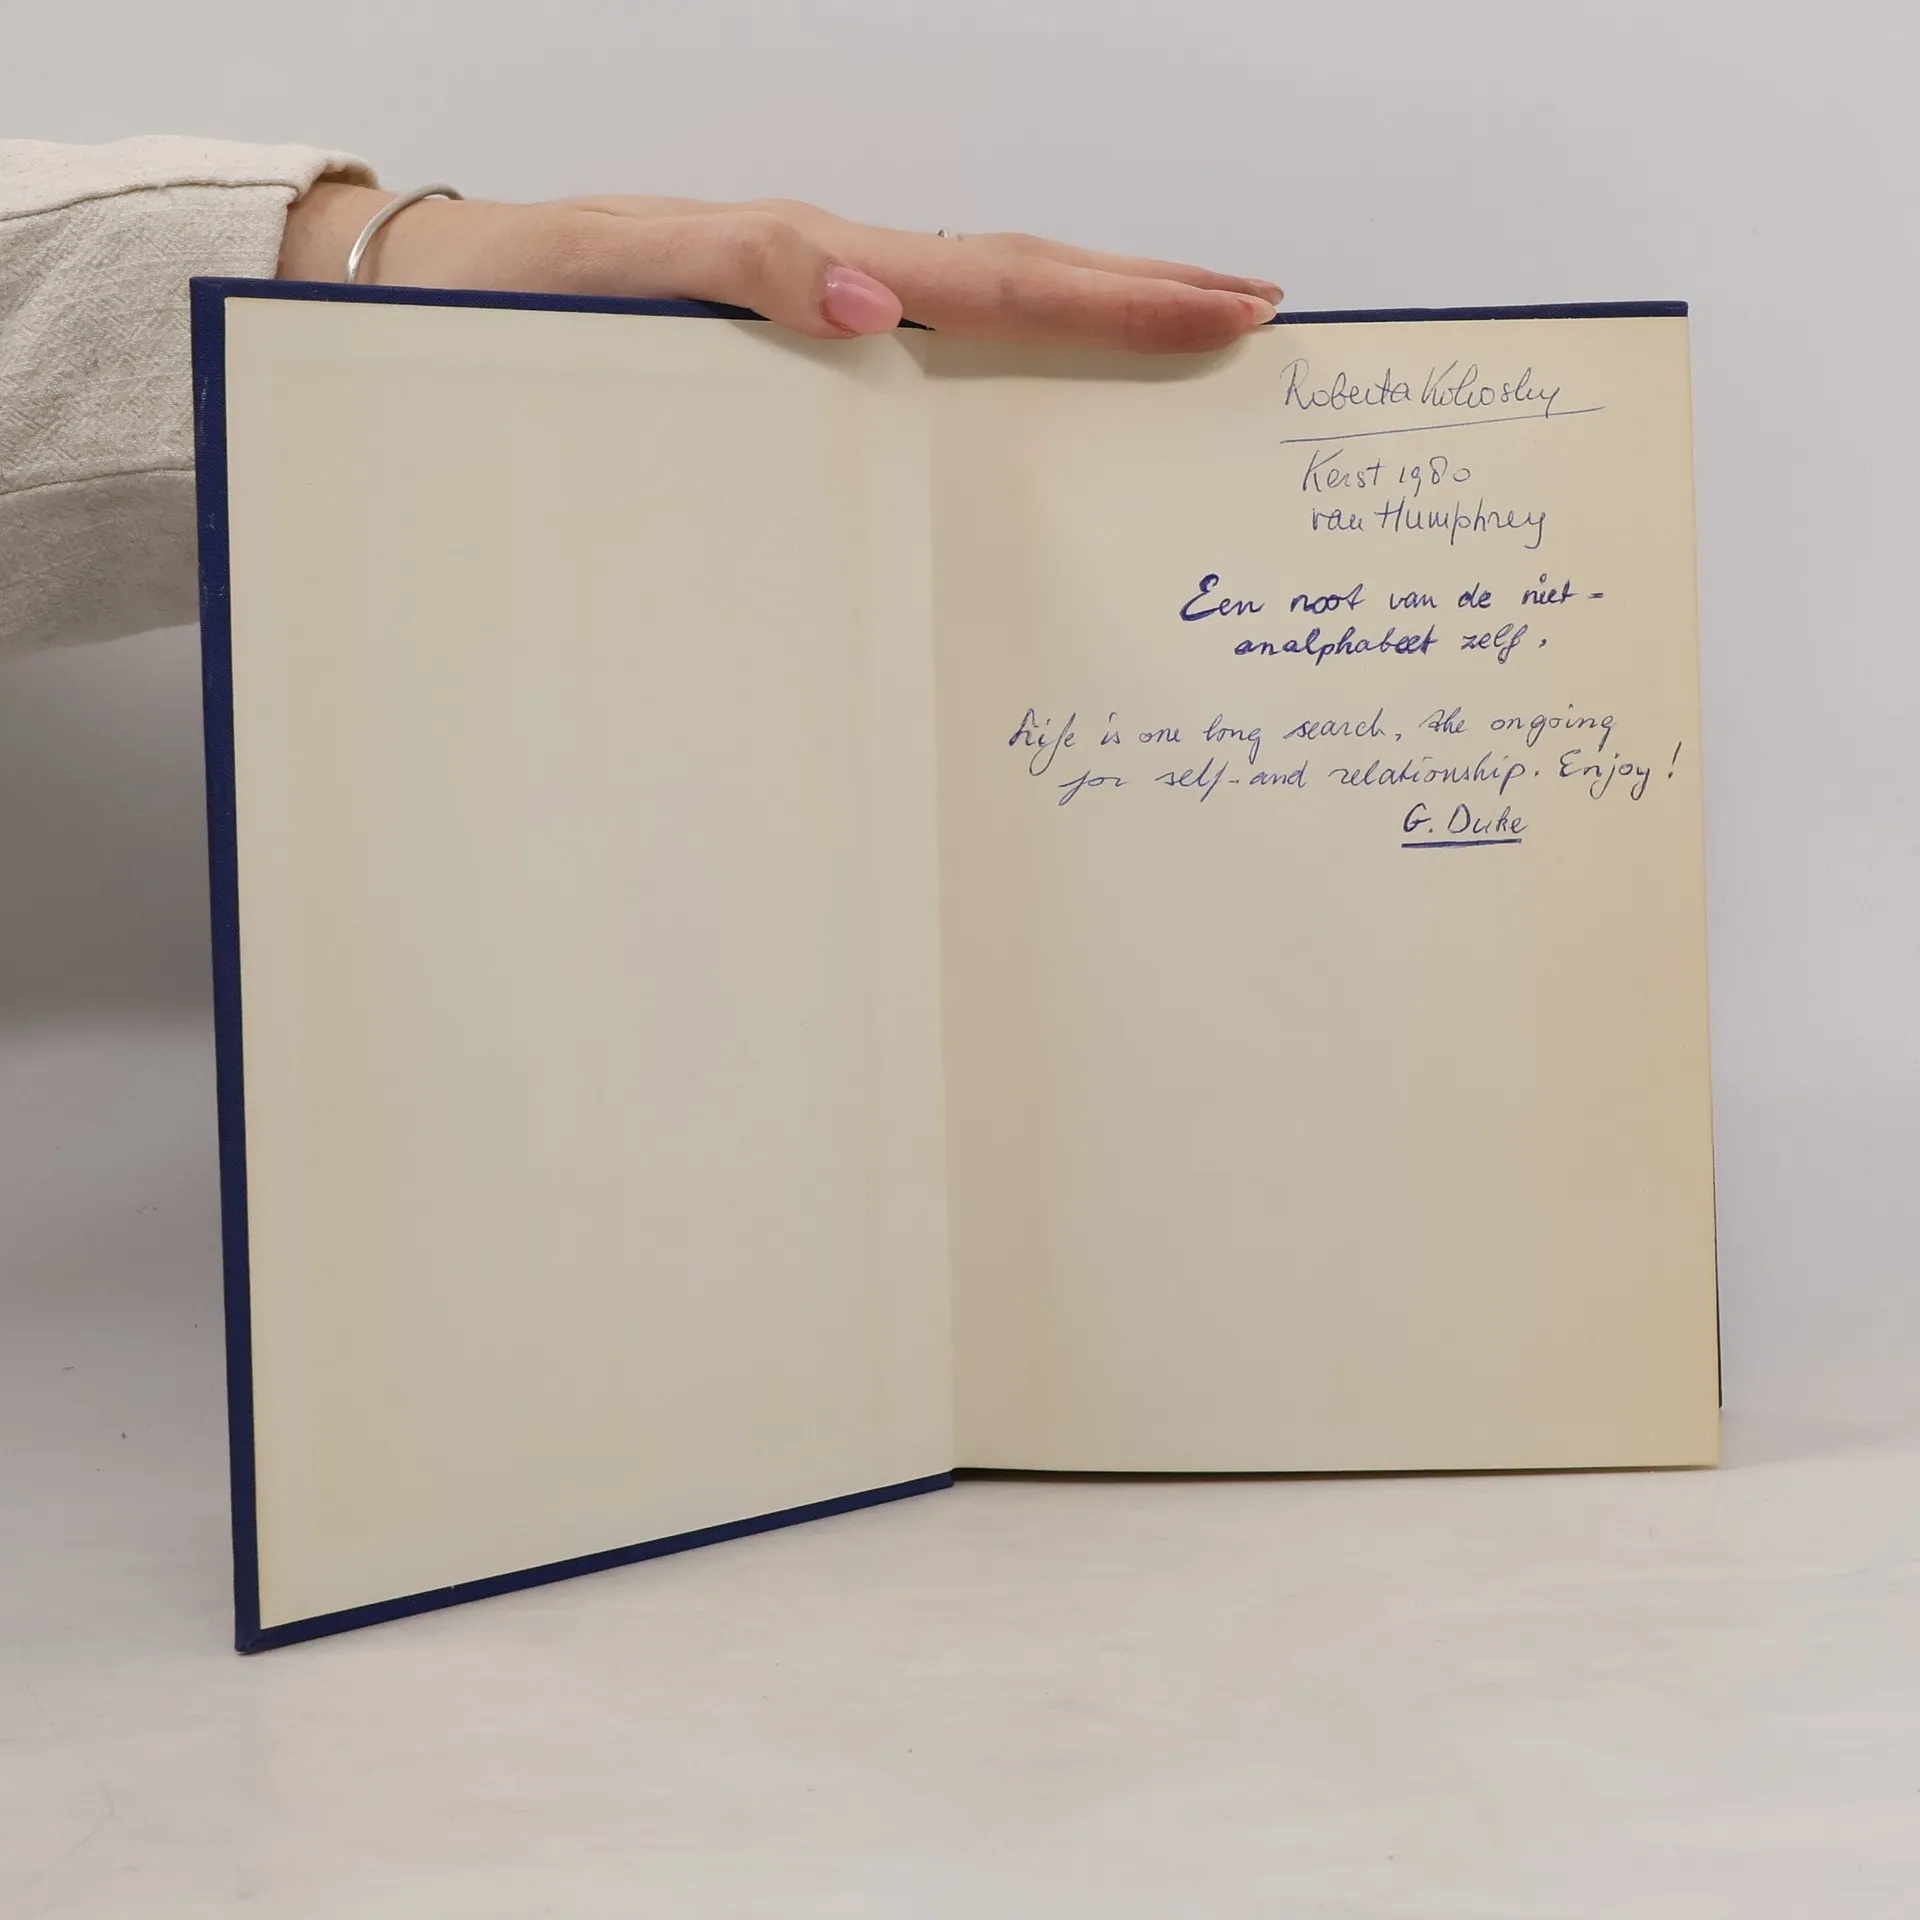 Roberta
Kerst 1980
van Humphrey
Een noot van de niet =
analphabeet zelf.
Life is one long search, the ongoing
for self- and relationship. Enjoy!
G. Duke